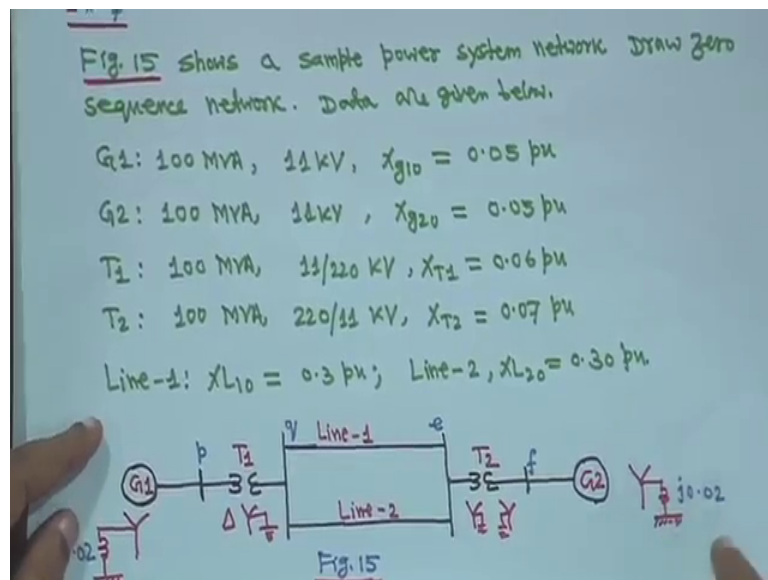 Fig. 15 shows a sample power system network Draw zero
sequence network. Data are given below.
G1: 100 MVA, 11 kV, Xg10 = 0.05 pu
G2: 100 MVA, 11kV, Xg20 = 0.05 pu
T1: 100 MVA, 11/220 KV, XT1 = 0.06 pu
T2: 100 MVA, 220/11 KV, XT2 = 0.07 pu
Line-1: XL10 = 0.3 pu; Line-2, XL20 = 0.30 pu
q Line-1 e
p T1 T2 f
G1 G2
Δ Y Line-2 Y Y Y j0.02
.02 Y
Fig. 15